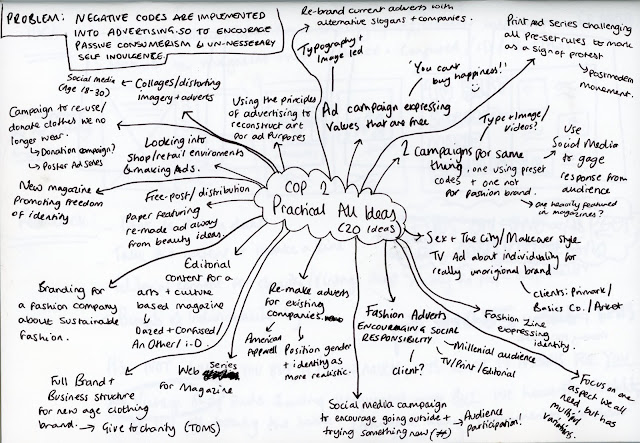 PROBLEM: NEGATIVE CODES ARE IMPLEMENTED
INTO ADVERTISING. SO TO ENCOURAGE
PASSIVE CONSUMERISM & UN-NESSERARY
SELF INDULGENCE.
Re-brand current adverts with
alternative slogans + companies.
Typography +
Image led
Print Ad Series challenging
all pre-set rules to mark
as a sign of protest
Postmodern
movement.
'You can't
bug happiness!!'
Ad campaign expressing
values that are free
Social media
(Age 18-30)
Collages/distorting
imagery + adverts
Using the principles
of advertising to
reconstruct art
for ad purposes
Campaign to re-use/
donate clothes we no
longer wear.
Donation campaign?
Poster Ad series
Looking into
Shop/retail enviroments
& making Ads.
Type + Image/
Videos?
2 campaigns for same
thing, one using preset
codes + one not
for fashion brand.
Use
Social Media
to gage
response from
audience
Ad heavily featured
in magazines?
New magazine
Promoting freedom
of identity
Free-post/distribution
paper featuring
re-made ad away
from beauty ideas.
COP 2
Practical All Ideas
(20 Ideas)
Sex + The City/Makeover style
TV Ad about individuality for
really unorigional brand
clients: Primark/
Basics Co./Arket
Branding for
a fashion company
about Sustainable
Fashion.
Editorial
content for a
arts + culture
based magazine
Dazed + Confused/
An Other/i-D
Re-make adverts
for existing
companies.
American
Apparell
Position gender
+ identity as
more realistic.
Fashion Adverts
ENCOURAGING SOCIAL
RESPONSIBILITY
client?
Millenial audience
TV/Print/Editorial
Fashion Zine
expressing
identity.
Focus on one
aspect we all
need, but has
multiple
variations.
Web Series
for Magazine
Full Brand +
Business structure
for new age clothing
brand. → Give to charity (TOMS)
Social media campaign
to encourage going outside +
trying something new (#)
Audience
participation!